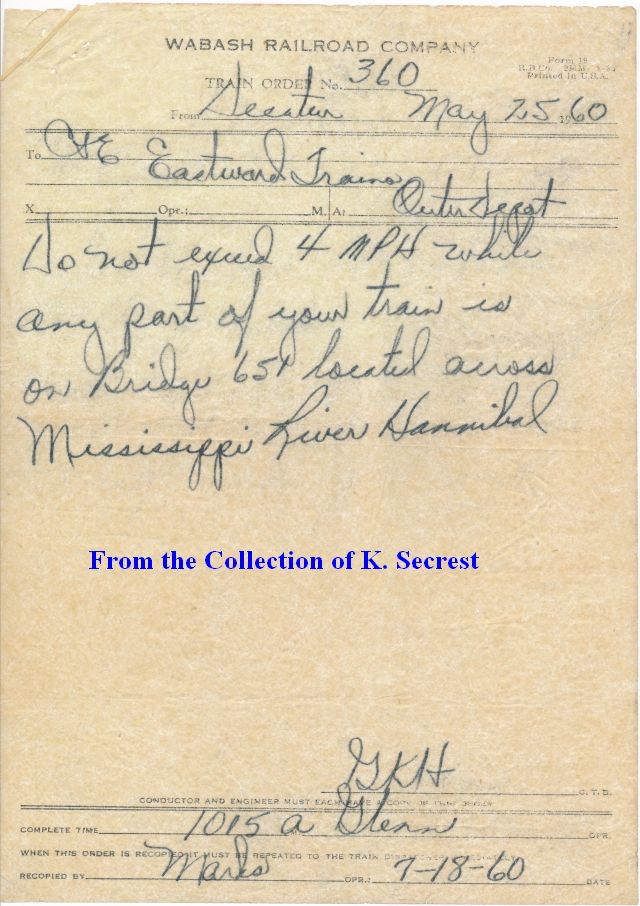 WABASH RAILROAD COMPANY
Form 19
Printed in U.S.A.
TRAIN ORDER No. 360
From Decatur May 25 1960
To C&E Eastward Trains
X Opr.: M. At Outer Depot
Do not exceed 4 MPH while
any part of your train is
on Bridge 651 located across
Mississippi River Hannibal
From the Collection of K. Secrest
GKH C.T.D.
CONDUCTOR AND ENGINEER MUST EACH HAVE A COPY OF THIS ORDER
COMPLETE TIME 1015 A Glenn OPR.
WHEN THIS ORDER IS RECOPIED IT MUST BE REPEATED TO THE TRAIN DISPATCHER
RECOPIED BY Marks OPR.: 7-18-60 DATE